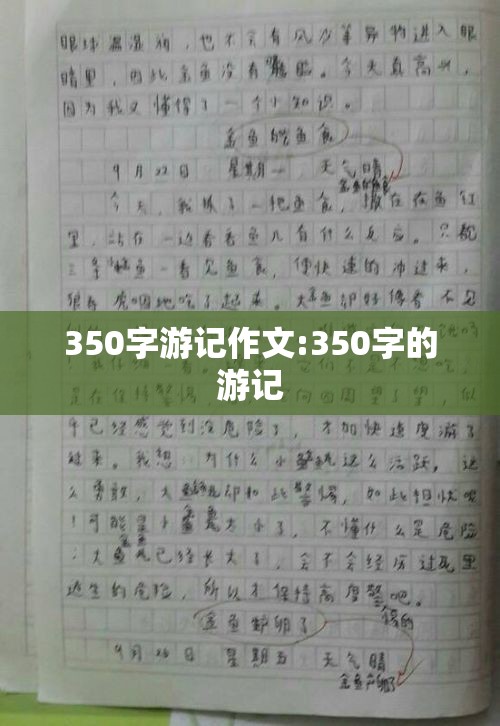 眼球漏湿润,也不会有风沙等异物进入眼
睛里,因此金鱼没有眼睑。今天真高兴,
因为我又懂得了一个小知识。
金鱼的鱼食
9月22日 星期一 天气晴
今天,我抓了一把鱼食,撒在在鱼缸
里,站在一边看看鱼儿有什么反应。只见
三条 鱼一看见鱼食,便快速的冲过来,
狼吞虎咽地吃了起来。大金鱼却好像看不见
350字游记作文:350字的
游记
乎已经感觉到没危险了,才加快速度游了
过来。我想:为什么小金鱼这么活跃,这
么勇敢,大金鱼却如此警惕,如此担忧呢
?可能是小金鱼太小了,不懂什么是危险
;大金鱼已经长大了,会不会经历过死里
逃生的危险,所以才保持高度警吧。
惕的
金鱼 卵了
9月26日 星期五 天气晴
金鱼产卵了